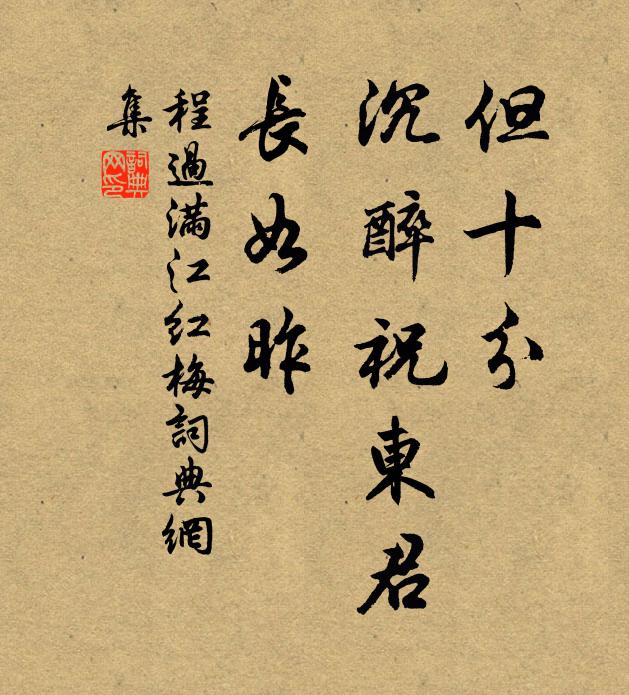 但十分
沉醉祝東君
長如昨
程過滿江紅梅詞典網
集
詞典網印